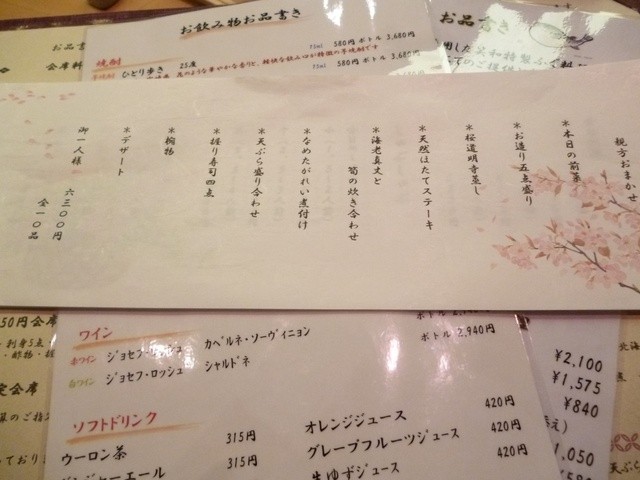 お飲み物お品書き
焼酎
ひとり歩き 25度
580円 ボトル 3,680円
580円 ボトル 3,680円
お品書き
お品書
会席料
親方おまかせ
*本日の前菜
*お造り五点盛り
*桜道明寺蒸し
*天然ほたてステーキ
*海老真丈と
筍の炊き合わせ
*なめたがれい煮付け
*天ぷら盛り合わせ
*握り寿司四点
*椀物
*デザート
御一人様 六三〇〇円
全一〇品
ワイン
赤ワイン ジョセフ・ロッシュ カベルネ・ソーヴィニョン
白ワイン ジョセフ・ロッシュ シャルドネ ボトル 2,940円
ソフトドリンク
ウーロン茶 315円
ジンジャーエール 315円
オレンジジュース 420円
グレープフルーツジュース 420円
生ゆずジュース 420円
50円会席
定会席
北海
¥2,100
¥1,575
¥840
1,050
天ぷら